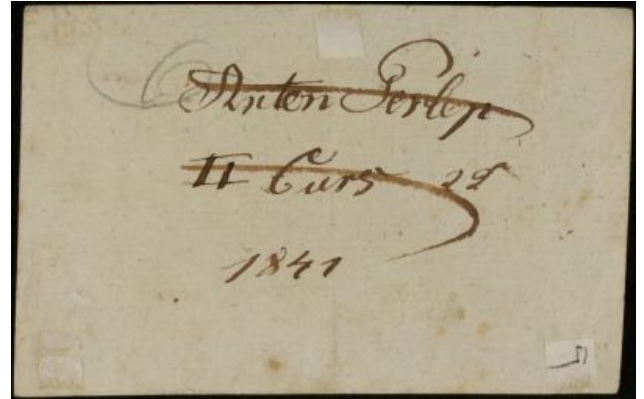 Anton Perlep
II Curs
1841